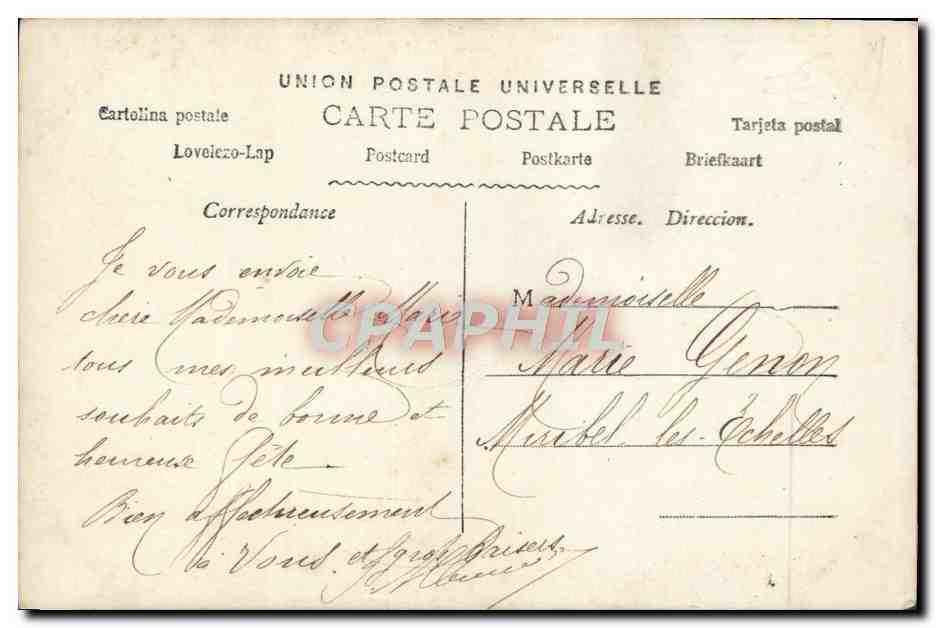 UNION POSTALE UNIVERSELLE
CARTE POSTALE
Cartolina postale
Tarjeta postal
Lovelezo-Lap
Postcard
Postkarte
Briefkaart
Correspondance
Je vous envoie
chère Mademoiselle Marie
tous mes meilleurs
souhaits de bonne et
heureuse fête.
Bien affectueusement
à Vous et gros Baisers
Adresse. Direccion.
Mademoiselle
Marie Genon
Miribel-les-Echelles
CPAPHIL